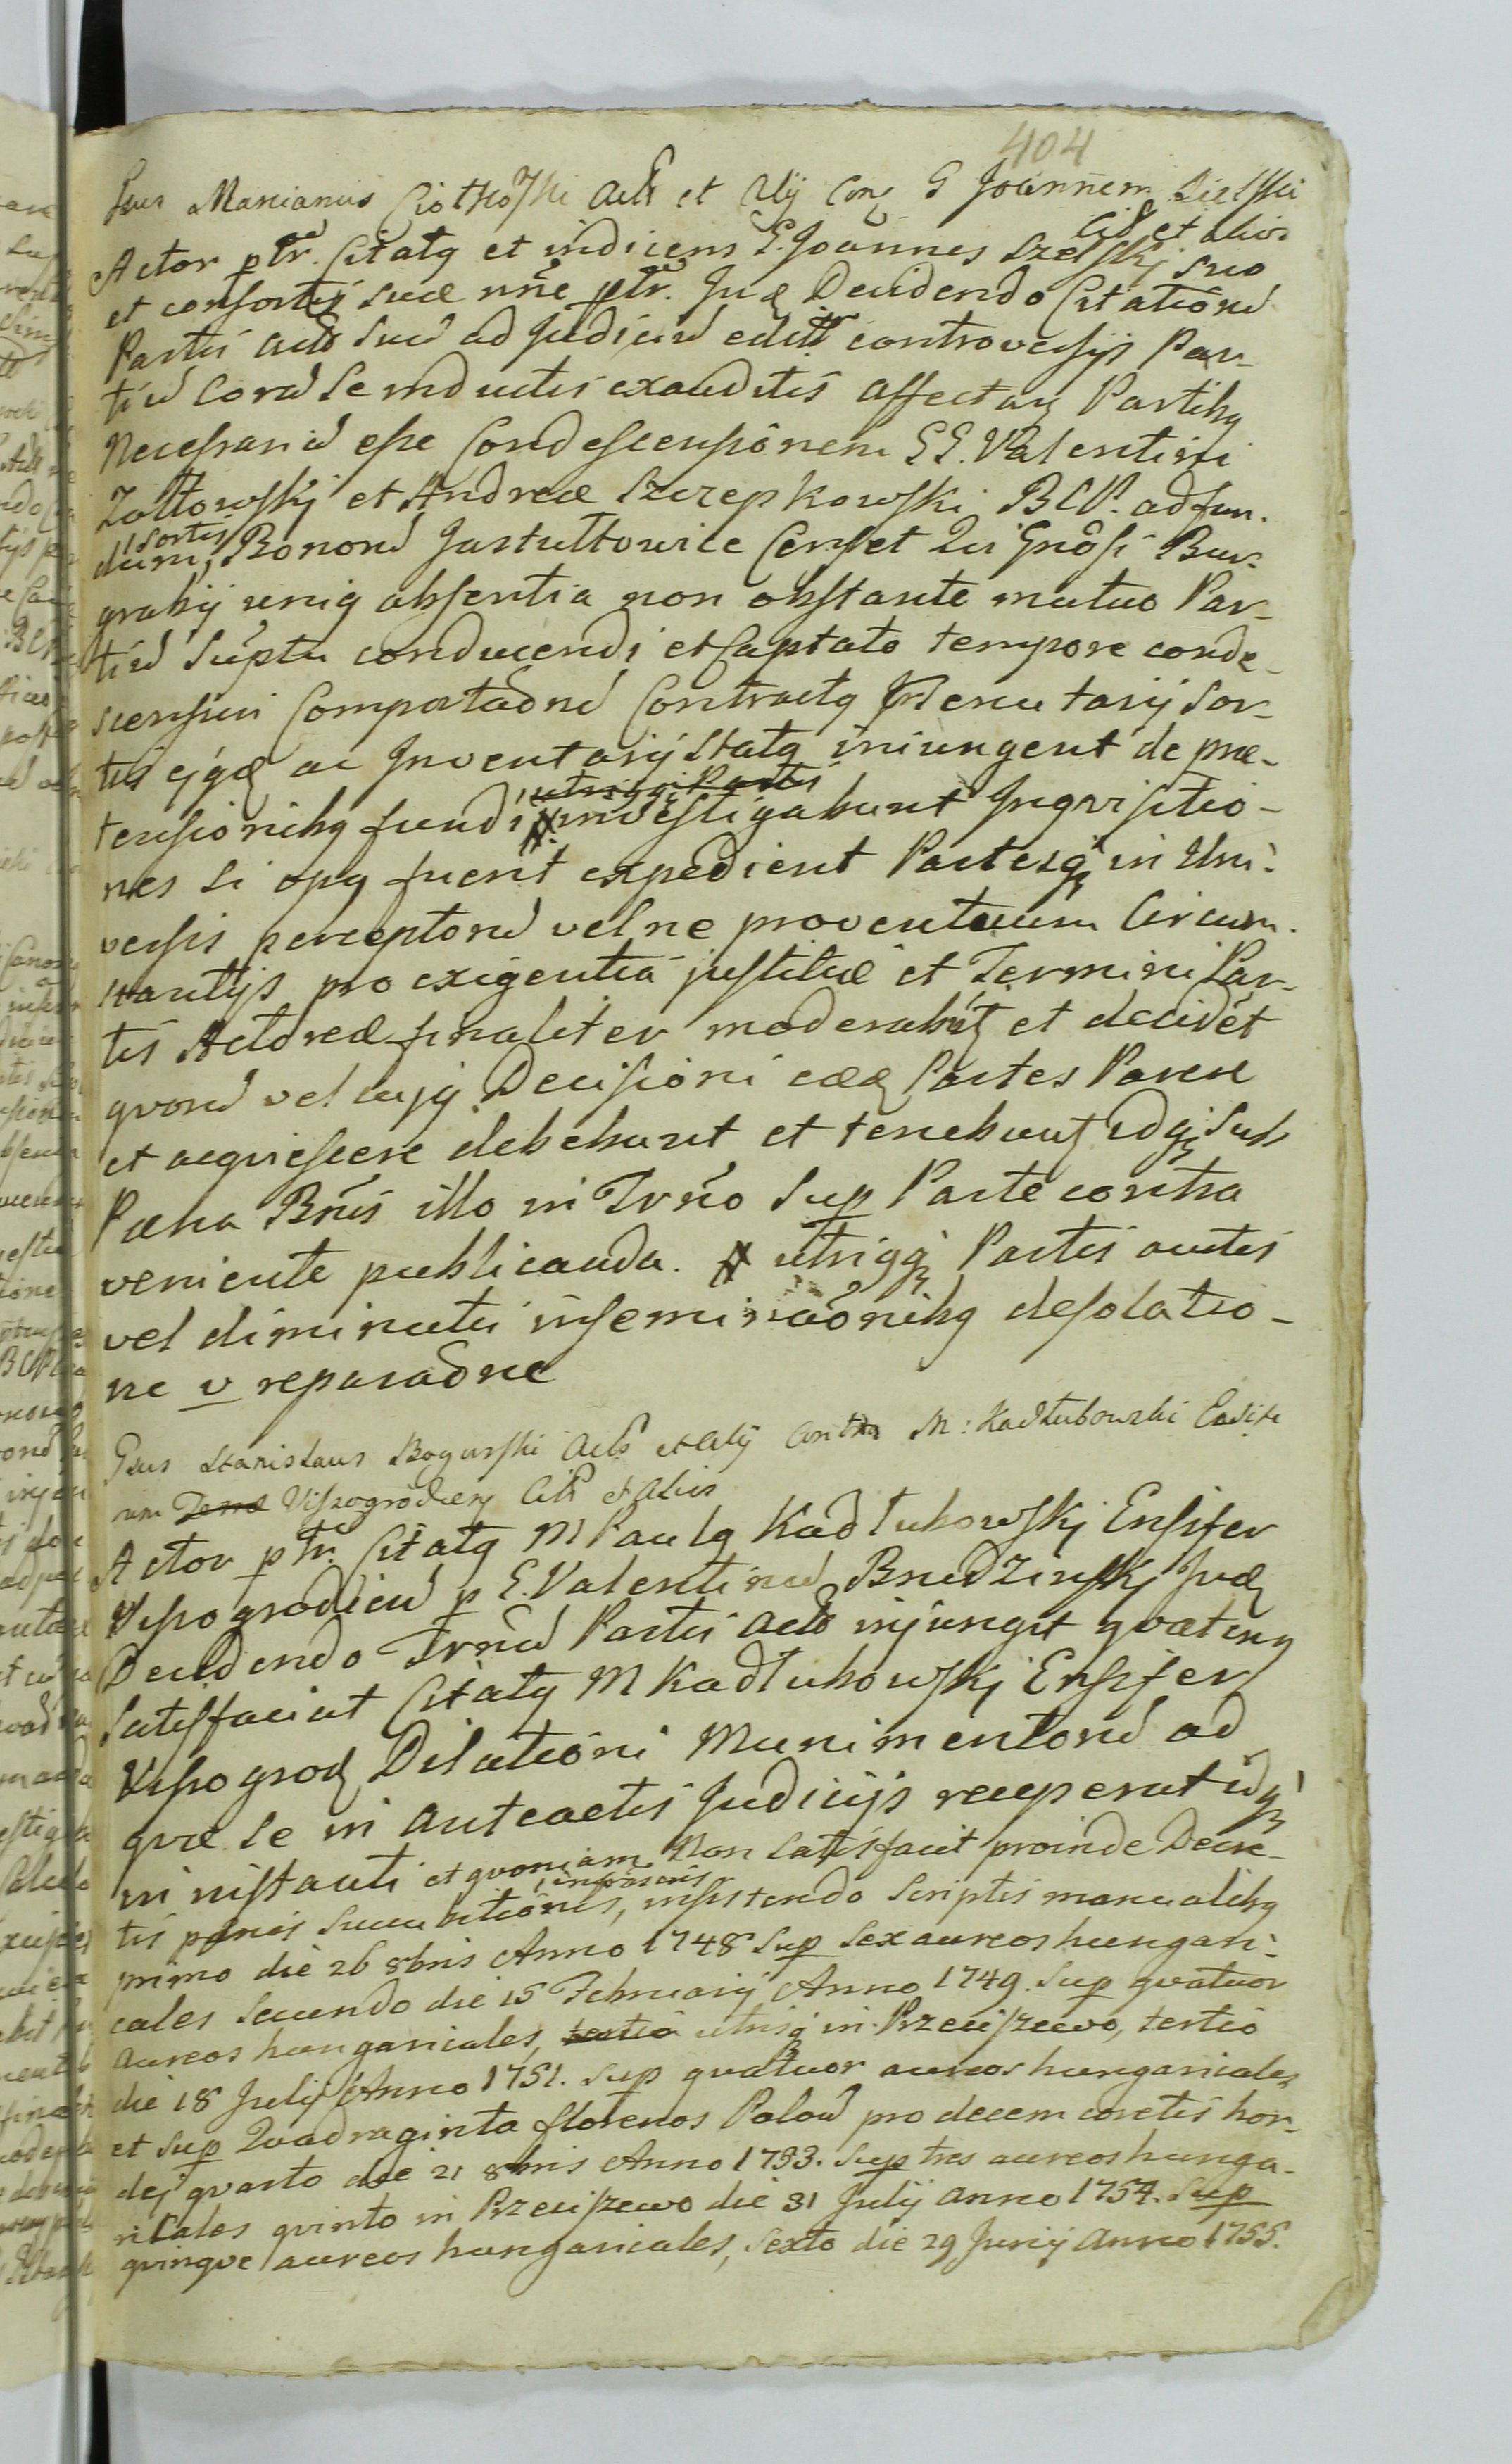 404
Gnus Marcianus Ciotkowski Actor et Alij Con G Joannem Szelski
Cit et Alios
Actor ptr. Citatq et indicens G. Joannes Szelskj suo
et consortis suae nne ptr. Jud Decidendo Citationem
Partis act suu ad Judicium edit controversijs Par-
tiu Coram se inductis exauditis affectatq Partibq
Necessariu esse Condescensionem GG. Valentini
Zołtowskj et Andreae Szczepkowski BCP. ad fun-
dum, sortis Bonorum Gastułtowice Censet qui Gnosi Bur-
grabij uniq absentia non obstante mutuo Par-
tiu Sumptu conducendi et Captato tempore conde-
scensuri Comportationem Contractq Tenutarij Sor-
tis ejqd ac Inventarij Statq iniungent de prae-
tensionibq fundi utriqq Partis investigabunt Inqvisitio-
nes si opq fuerit expedient Partesqq in Uni-
versis perceptorum vel ne proventuum Circum-
stantijs pro exigentia justitiae et Termini Par-
tis Actoreae finaliter moderabutq et decidet
qvorum vel cujq Decisioni eaed Partes Parere
et acqviescere debebunt et tenebuntq Idqq sub
Paena Bnis illo in Trno Sup Parte contra
veniente publicanda. # utriqq Partis auctis
vel diminutis inseminaonibq desolatio-
ne v reparaone
Gnus Stanislaus Bogurski Act et Alij contra M: Kadłubowski Ensife
rum Terrae Vissogrodien Cit et Alios
Actor ptr. Citatq M Paulq Kadłubowskj Ensifer
Vissogrodien p G. Valentinum Brudzinskj Jud
Decidendo Trnum Partis act injungit qvatenq
Satisfaciat Citatq M Kadłubowskj Ensifer
Vissogrod Dilationi Munimentorum ad
qvae se in anteactis Judicijs receperat idqq
in instanti et qvoniam Non Satisfacit proinde Decre-
tis paenis Succubitionis, infrascris insistendo Scriptis manualibq
primo die 26 8bris Anno 1748 Sup Sex aureos hungari-
cales Secundo die 15 Februarij Anno 1749. Sup qvatuor
Aureos hungaricales, tertio utrisq in Brzeciszewo, tertio
die 18 Julij Anno 1751. sup qvatuor aureos hungaricales
et sup Quadraginta florenos Polon pro decem coretis hor-
dej qvarto die 21 8bris Anno 1753. Sup tres aureos hunga-
ricales qvinto in Brzeciszewo die 31 Julij Anno 1754. Sup
qvinqve aureos hungaricales, Sexto die 29 Junij Anno 1755.